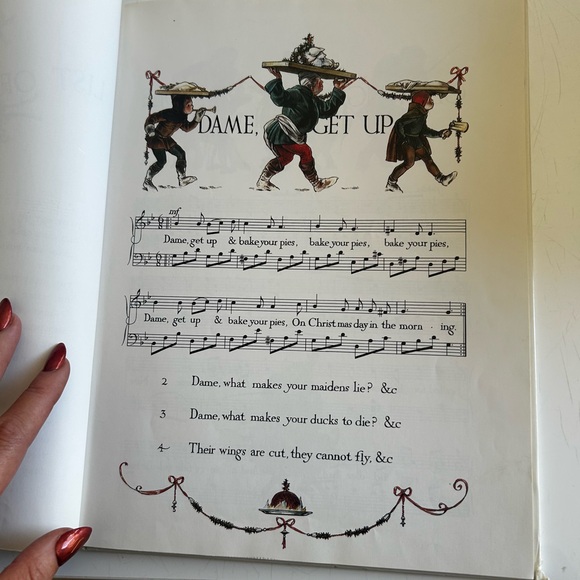 DAME, GET UP
mf
Dame, get up & bake your pies, bake your pies, bake your pies,
Dame, get up & bake your pies, On Christmas day in the morn - ing.
2 Dame, what makes your maidens lie? &c
3 Dame, what makes your ducks to die? &c
4 Their wings are cut, they cannot fly, &c